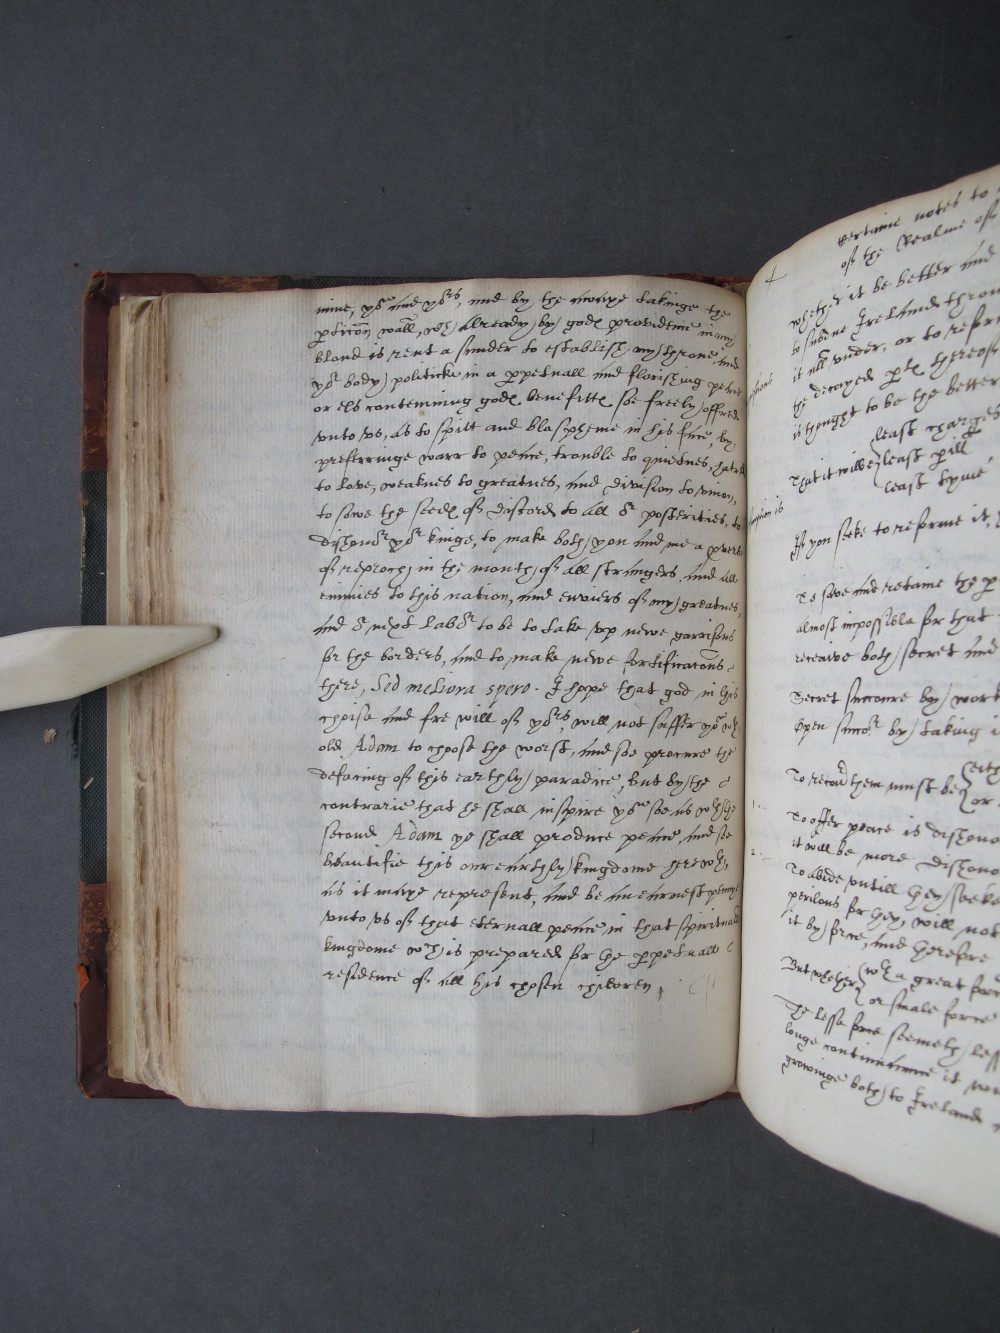 mine, yor and yors, and by the awaye takinge the
pticon wall, wch already by gods providence in my
bloud is rent a sunder to establish my throne and
yor body politicke in a ppetuall and florishing peace
or els contemning gods benefitts soe freely offred
unto us, as to spitt and blaspheme in his face, by
preferringe warr to peace, trouble to quietnes, hatred
to love, weaknes to greatnes, and division to union,
to sowe the seeds of discord to all or posterities, to
dishonor yor kinge, to make both you and me a proverb
of reproch in the mouth of all strangers and all
enimies to this nation, and enviers of my greatnes,
and or next labor to be to take up newe garrisons
for the borders, and to make newe fortificacons
there, Sed meliora spero. I hope that god in his
choise and fre will of yors, will not suffer you wth
old Adam to choose the worst, and soe procure the
defacing of this earthly paradice, but by the
contrarie that he shall inspire you soe as wth the
second Adam ye shall produce peace, and soe
beautifie this our earthly kingdome herewth,
as it maye represent, and be an earnest penny
unto us of that eternall peace in that spirituall
kingdome wch is prepared for the ppetuall
residence of all his chosen children,
Certaine notes to
of the Realme of
Whether it be better and
to subdue Ireland throu
it all under, or to refor
the decayed pts thereof
is thought to be the better
That it wilbe
least charges
least pill
least tyme
If you seeke to reforme it,
To save and retaine the p
almost impossible for that
receaive both secret and
Secret succoure by work
Open succor by taking
To recover them must be
eith
or
1.
To offer peace is dishono
it will be more dishono
2.
To abide untill they seeke
perilous for they will not
it by force, and therefore
But whether
wth a great forc
or smale force
The lesse force seemeth less
longe continuance it wo
growinge both to Ireland